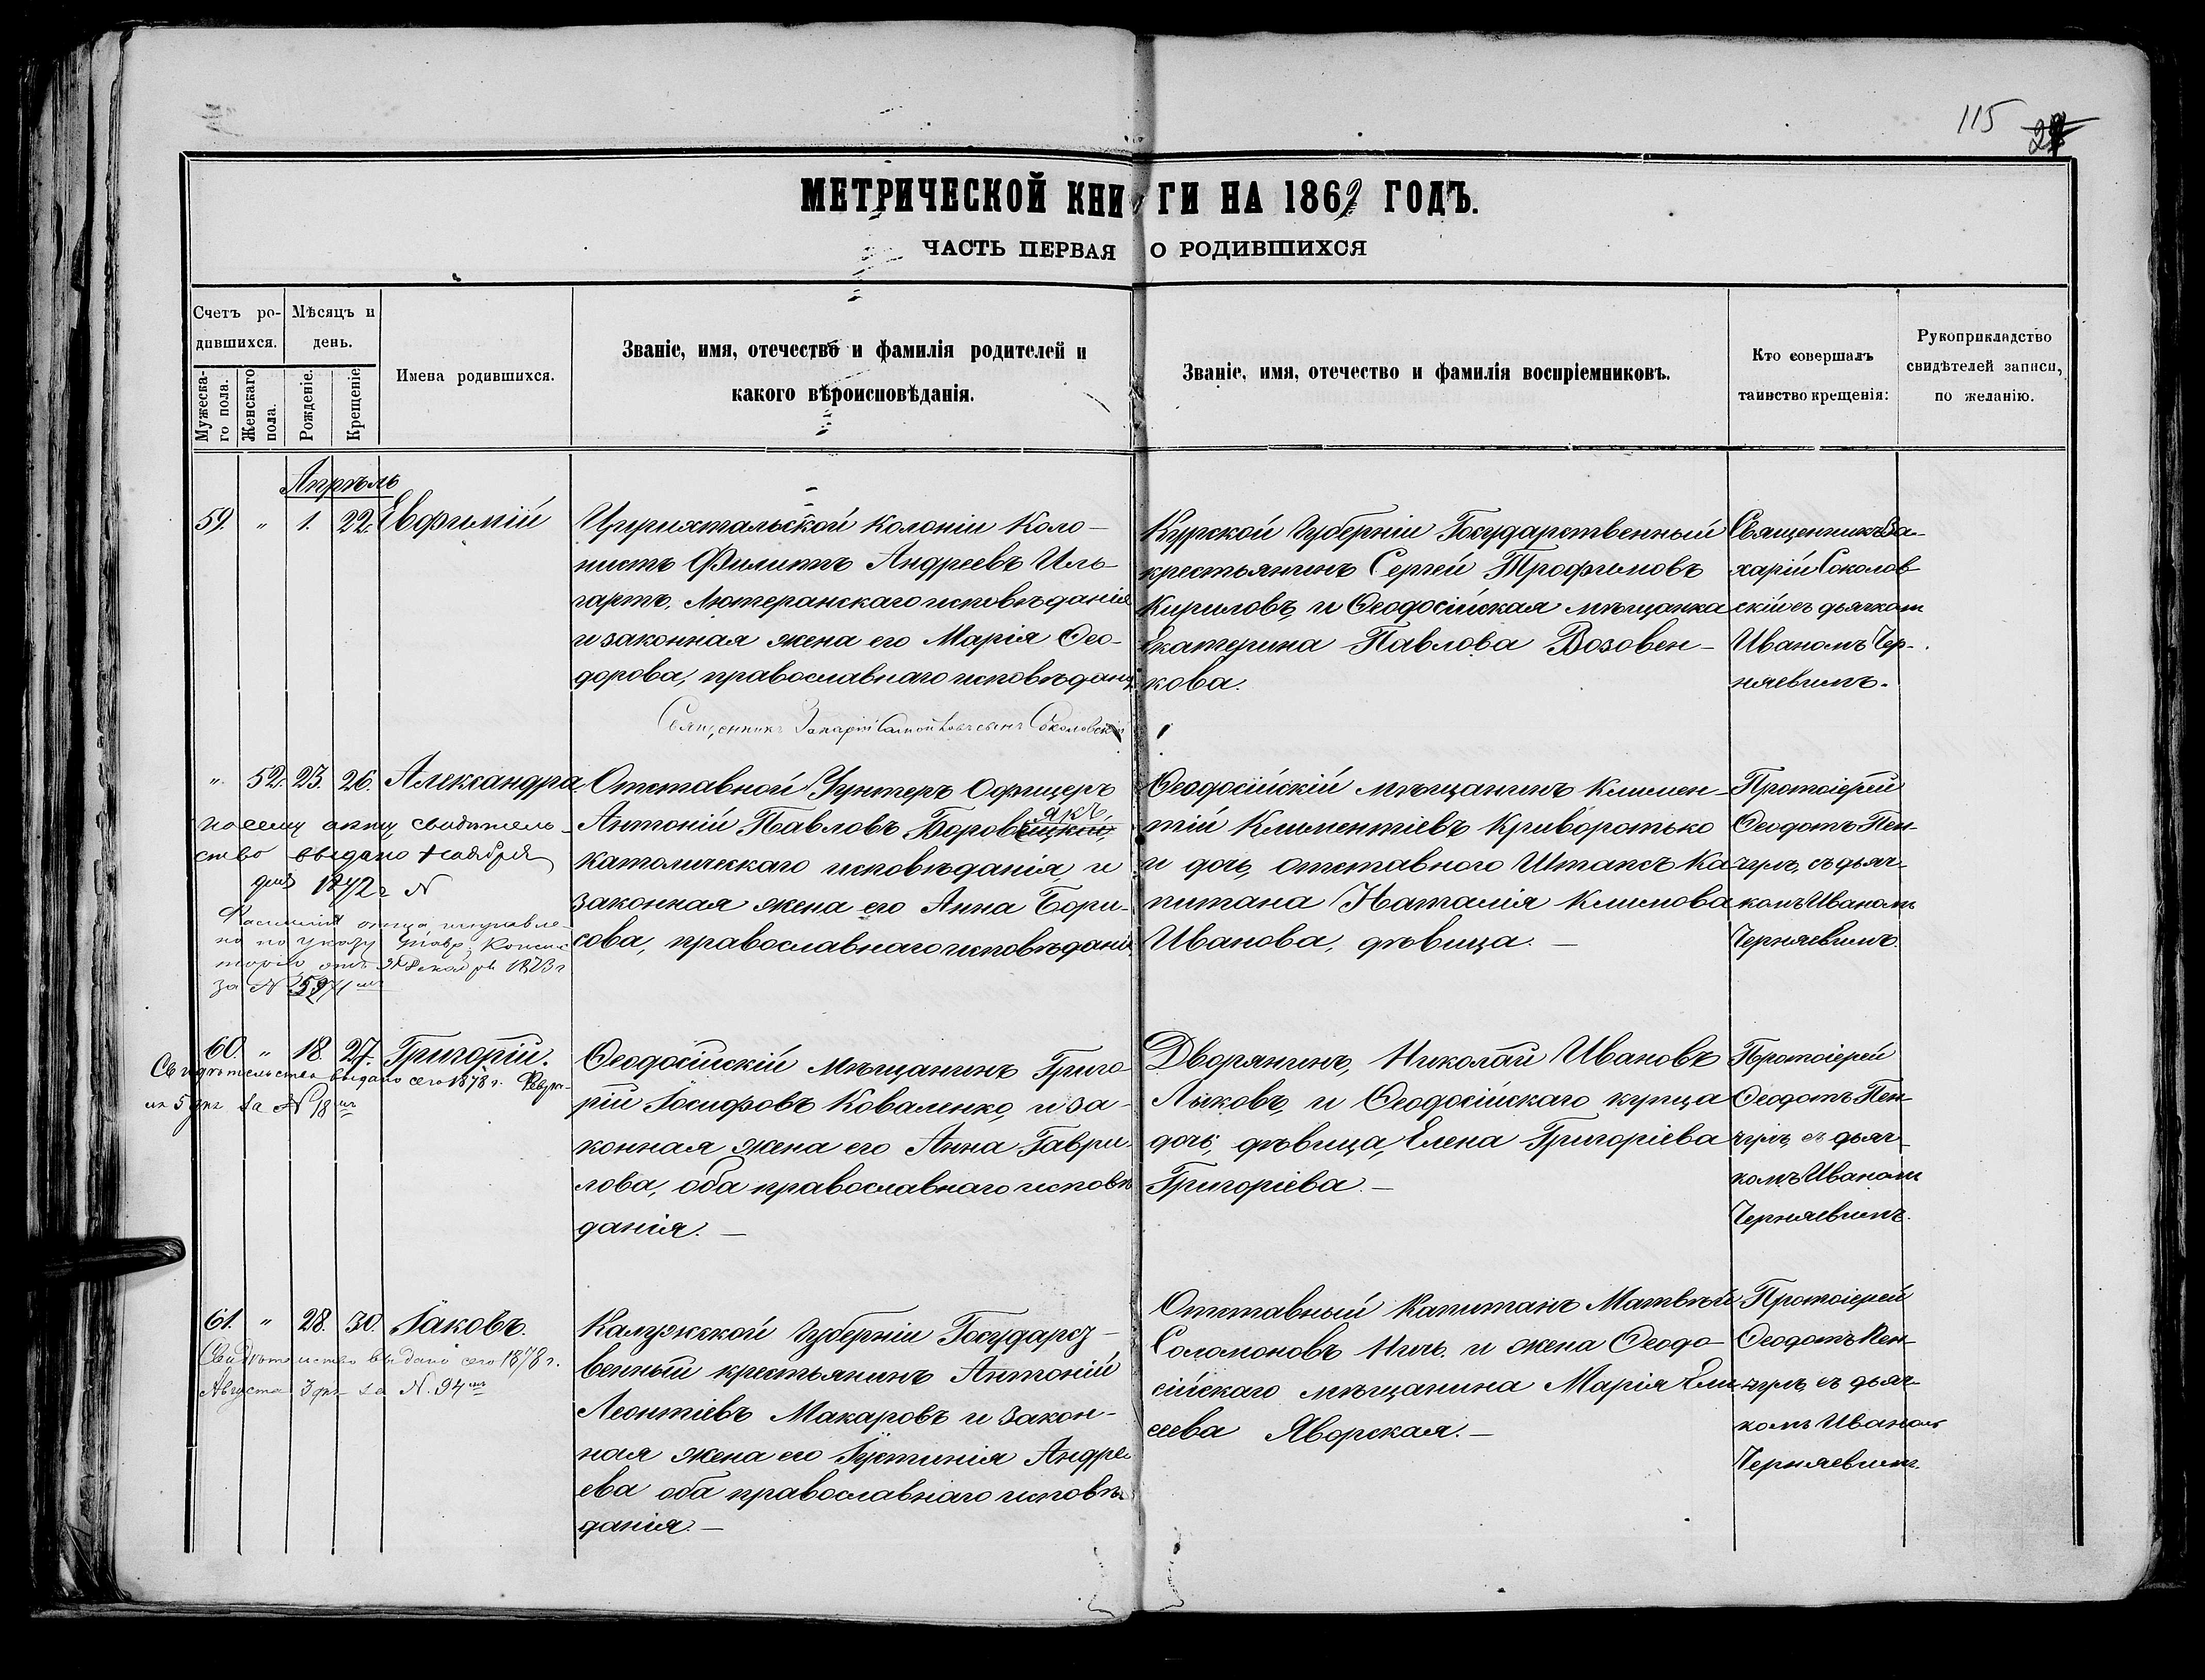 115
27
МЕТРИЧЕСКОЙ КНИГИ НА 1869 ГОДЪ.
ЧАСТЬ ПЕРВАЯ О РОДИВШИХСЯ
Счетъ ро-
дившихся.
Мѣсяцъ и
день.
Мужеска-
го пола.
Женскаго
пола.
Рожденіе.
Крещеніе
Имена родившихся.
Званіе, имя, отечество и фамилія родителей и
какого вѣроисповѣданія.
Званіе, имя, отечество и фамилія воспріемниковъ.
Кто совершалъ
таинство крещенія:
Рукоприкладство
свидѣтелей записи,
по желанію.
Апрѣль
59. " 1. 22. Евфимій
Цюрихтальской колоніи Коло-
нистъ Филиппъ Андреевъ Иль-
гартъ, Лютеранскаго исповѣданія
и законная жена его Марія Ѳео-
дорова, православнаго исповѣдан.
Священникъ Захарій Соколовскій
Курской Губерніи Государственный
крестьянинъ Сергѣй Трофимовъ
Кириловъ, и Ѳеодосійская мѣщанка
Екатерина Павлова Возовен-
кова.
Священникъ За-
харій Соколов
скій съ дьячком
Иваномъ Чер-
няевимъ.
" 52. 23. 26. Александра
по сему акту свидѣтель-
ство выдано Ноября
дня 1872 г N
Фамилія отца исправле-
но по указу Тавр. Консис
торіи отъ 31 Декабря 1873 г
за N 5971
Отставной Унтеръ Офицеръ
Антоній Павловъ Боровскій, якъ,
католическаго исповѣданія, и
законная жена его Анна Бори-
сова, православнаго исповѣданія
Ѳеодосійскій мѣщанинъ Климен-
тій Климентіевъ Криворотько
и дочь, отставного Штапсъ Ка-
питана Наталія Климова
Иванова, дѣвица. —
Протоіерей
Ѳеодотъ Пен-
чулъ, съ дьяч-
комъ Иваномъ
Черняевимъ.
60. " 18. 27. Григорій.
Свидѣтельство выдано сего 1878 г. Февра-
ля 5 дня за N 18
Ѳеодосійскій мѣщанинъ Григо-
рій Іосифовъ Коваленко, и за-
конная жена его Анна Гаври-
лова, оба православнаго исповѣ
данія. —
Дворянинъ, Николай Ивановъ
Лыковъ, и Ѳеодосійскаго купца
дочь, дѣвица, Елена Григоріева
Григоріева. —
Протоіерей
Ѳеодотъ Пен-
чулъ, съ дьяч-
комъ Иваномъ
Черняевимъ.
61. " 28. 30. Іаковъ.
Свидѣтельство выдано сего 1878 г.
Августа 3 дня за N. 94
Калужской Губерніи Государст-
венный крестьянинъ Антоній
Леонтіевъ Макаровъ и закон-
ная жена его Іустинія Андре
ева оба православнаго исповѣ
данія. —
Отставный Капитанъ Матвѣй
Соломоновъ Ничъ. и жена Ѳеодо-
сійскаго мѣщанина Марія Ели-
сеева Яворская. —
Протоіерей
Ѳеодотъ Пен-
чулъ, съ дьяч-
комъ Иваномъ
Черняевимъ.